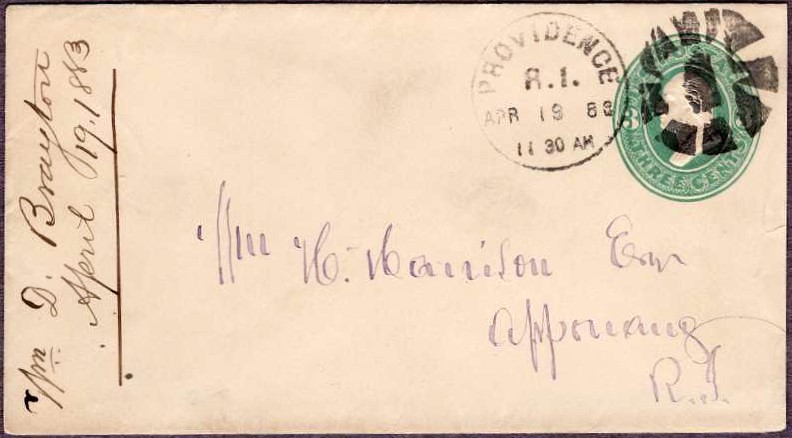 Wm D. Brayton
April 19. 1883
PROVIDENCE
R.I.
APR 19 83
11 30 AM
3
THREE CENTS
Wm H. Harrison Esq
Apponaug
R.I.